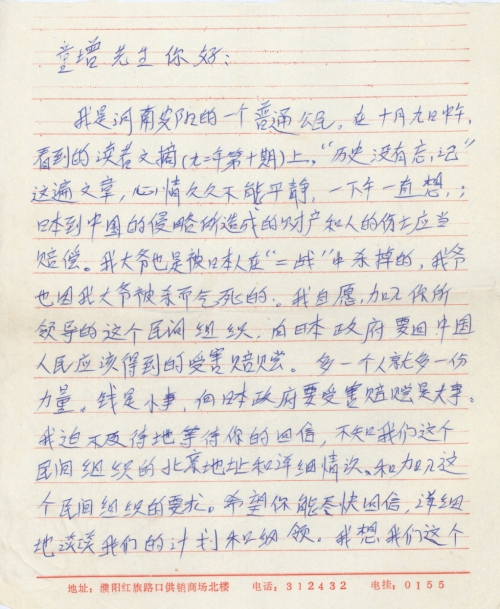 童增先生你好：
我是河南安阳的一个普通公民。在十月九日中午，
看到的读者文摘（九二年第十期）上，“历史没有忘记”
这遍文章，心情久久不能平静，一下午一直想，；
日本到中国的侵略所造成的财产和人的伤亡应当
赔偿。我大爷也是被日本人在“二战”中杀掉的，我爷
也因我大爷被杀而死的。我自愿，加入你所
领导的这个民间组织，向日本政府要回中国
人民应该得到的受害赔偿。多一个人就多一份
力量。钱是小事，向日本政府要受害赔偿是大事。
我迫不及待地等待你的回信，不知我们这个
民间组织的北京地址和详细情况、和加入这
个民间组织的要求。希望你能尽快回信，详细
地谈谈我们的计划和纲领。我想我们这个
地址：濮阳红旗路口供销商场北楼 电话：312432 电挂：0155